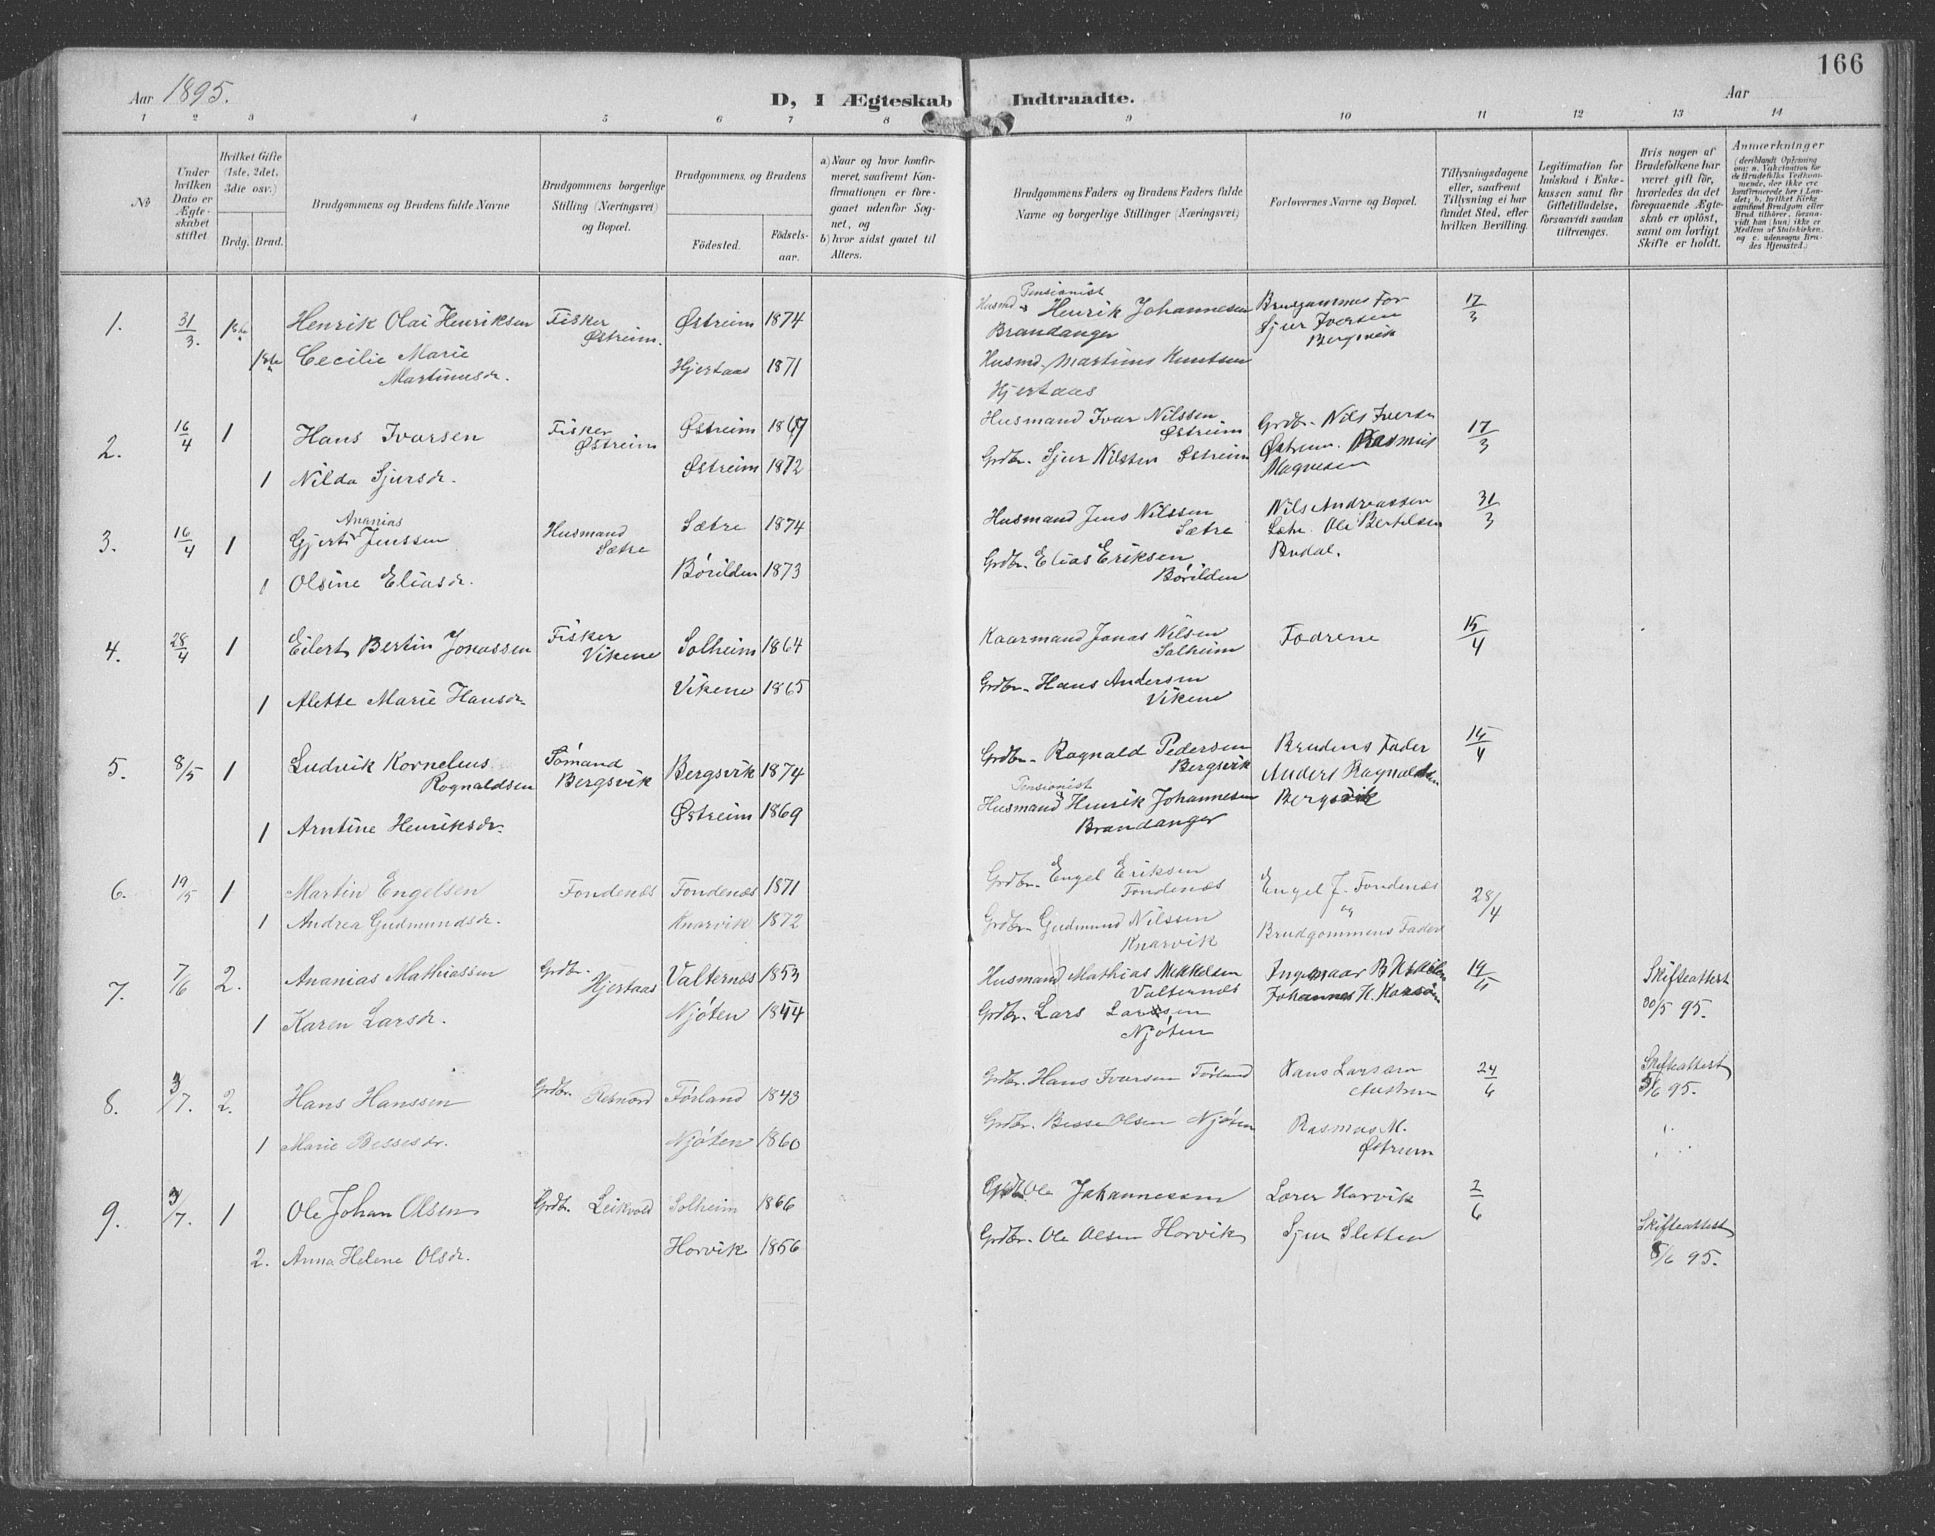 166
Aar 1895.
D, I Ægteskab Indtraadte.
Aar
1 2 3 4 5 6 7 8 9 10 11 12 13 14
No
Under hvilken Dato er Ægteskabet stiftet.
Hvilket Gifte (1ste, 2det, 3die osv.)
Brdg. Brud.
Brudgommens og Brudens fulde Navne
Brudgommens borgerlige Stilling (Næringsvei) og Bopæl.
Brudgommens og Brudens
Fødested. Fødselsaar.
a) Naar og hvor konfirmeret, saafremt Konfirmationen er foregaaet udenfor Sognet, og
b) hvor sidst gaaet til Alters.
Brudgommens Faders og Brudens Faders fulde Navne og borgerlige Stillinger (Næringsvei)
Forlovernes Navne og Bopæl.
Tillysningsdagene eller, saafremt Tillysning ei har fundet Sted, efter hvilken Bevilling.
Legitimation for Indskud i Enkekassen samt for Giftetilladelse, forsaavidt saadan tiltrænges.
Hvis nogen af Brudefolkene har været gift før, hvorledes da det foregaaende Ægteskab er opløst, samt om lovligt Skifte er holdt.
Anmærkninger
1. 31/3. 1ste Henrik Olai Henriksen Fisker Østreim. Østreim 1874 Husmd Pensionist Henrik Johannesen Brandanger Brudgommes Far Sjur Iversen Bergsvik 17/3
1ste Cecilie Marie Martinusdr. Hjertaas 1871 Husmd. Martinus Knutsen Hjertaas
2. 16/4 1 Hans Ivarsen Fisker Østreim Østreim Husmand Ivar Nilssen Østreim Grdbr. Nils Iversen Østreim. Rasmus Magnesen 17/3
1 Nilda Sjursdr. Østreim 1872 Grdbr. Sjur Nilssen Østreim
3. 16/4 1 Gjert Ananias Jenssen Husmand Sætre Sætre 1874 Husmand Jens Nilssen Sætre Nils Andreassen Ole Bertelsen 31/3
1 Olsine Eliasdr. Børilden 1873 Grdbr. Elias Eriksen Børilden
4. 28/4 1 Eilert Bertin Jonassen Fisker Vikene Solheim 1864 Kaarmand Jonas Nilsen Solheim Fædrene 15/4
1 Alette Marie Hansdr. Vikene 1865 Grdbr. Hans Andersen Vikene
5. 8/5 1 Ludvik Kornelius Rognaldsen Sømand Bergsvik Bergsvik 1874 Grdbr. Rognald Pedersen Bergsvik Brudens Fader Anders Ragnaldsen Bergsvik
1 Arntine Henriksdr. Østreim 1869 Pensionist Husmand Henrik Johannesen Brandanger
6. 19/5 1 Martin Engelsen Fondenæs Fondenæs 1871 Grdbr. Engel Eriksen Fondenæs Engel J. Fondenæs og Brudgommens Fader 28/4
1 Andrea Gudmundsdr. Knarvik 1872 Grdbr. Gudmund Nilssen Knarvik
7. 7/6 2. Ananias Mathiassen Grdbr. Hjertaas Valternæs 1853 Husmand Mathias Mikkelsen Valternæs Johannes H. Skifteattest 30/5 95.
1 Karen Larsdr. Njøten Grdbr. Lars Larssen Njøten
8. 3/7. 2. Hans Hanssen Grdbr. Førland 1843 Grdbr. Hans Ivarsen Førland Hans Larssen Austrem 24/6 Skifteattest 5/6 95.
1 Marie Bessesdr. Njøten 1860 Grdbr. Besse Olsen Njøten Rasmus M. Østreim
9. 3/7. 1 Ole Johan Olsen Grdbr. Leikvold Solheim 1866 Ole Johannesen Lærer Horvik 2/6
2. Anna Helene Olsdr. Horvik 1856 Grdbr. Ole Olsen Horvik Sjur Sletten Skifteattest 8/6 95.